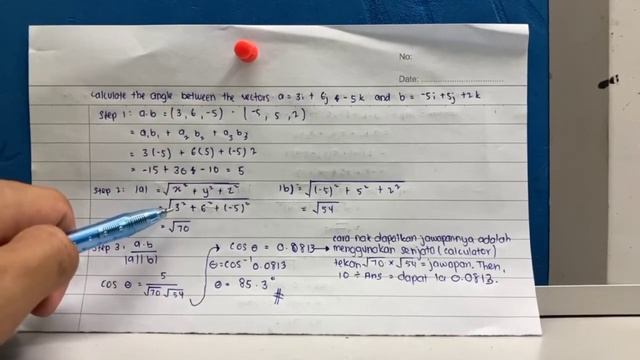 No:
Date:
Calculate the angle between the vectors a = 3i + 6j + -5k and b = -5i + 5j + 2k
Step 1: a.b = (3, 6, -5) . (-5, 5, 2)
= a₁b₁ + a₂b₂ + a₃b₃
= 3(-5) + 6(5) + (-5)2
= -15 + 30 + -10 = 5
Step 2: |a| = √x² + y² + z²
= √3² + 6² + (-5)²
= √70
|b| = √(-5)² + 5² + 2²
= √54
Step 3: a.b / |a||b|
cos θ = 5 / √70 √54
cos θ = 0.0813
θ = cos⁻¹ 0.0813
θ = 85.3° #
cara nak dapatkan jawapannya adalah
menggunakan senjata (calculator)
tekan √70 × √54 = jawapan. Then,
10 ÷ Ans = dapat la 0.0813.